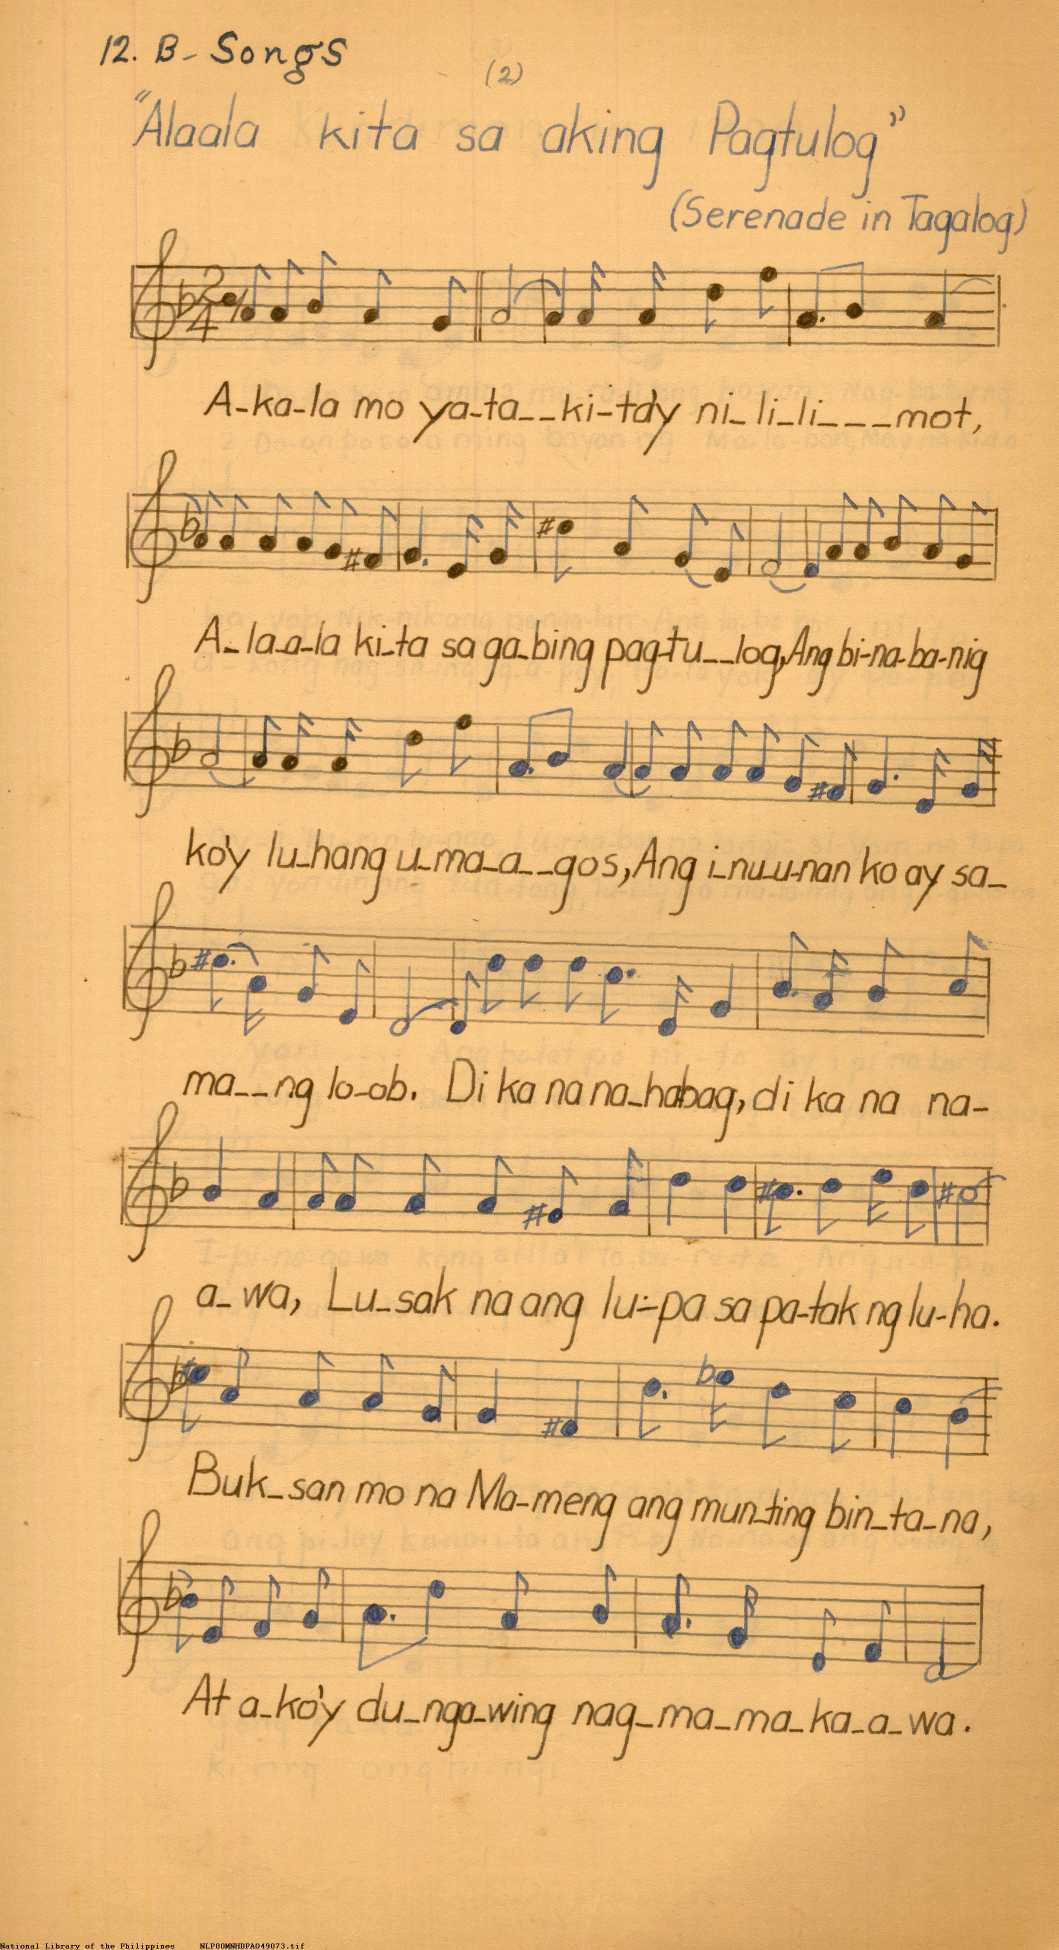 12. B- Songs
(2)
"Alaala kita sa aking Pagtulog"
(Serenade in Tagalog)
2/4
A-ka-la mo ya-ta--ki-ta'y ni-li-li---mot,
A-la-a-la ki-ta sa ga-bing pag-tu--log, Ang bi-na-ba-nig
ko'y lu-hang u-ma-a--gos, Ang i-nu-u-nan ko ay sa-
ma--ng lo-ob. Di ka na na-habag, di ka na na-
a-wa, Lu-sak na ang lu--pa sa pa-tak ng lu-ha.
Buk-san mo na Ma-meng ang mun-ting bin-ta-na,
At a-ko'y du-nga-wing nag-ma-ma-ka-a-wa.
National Library of the Philippines NLP00MNHDPA049073.tif